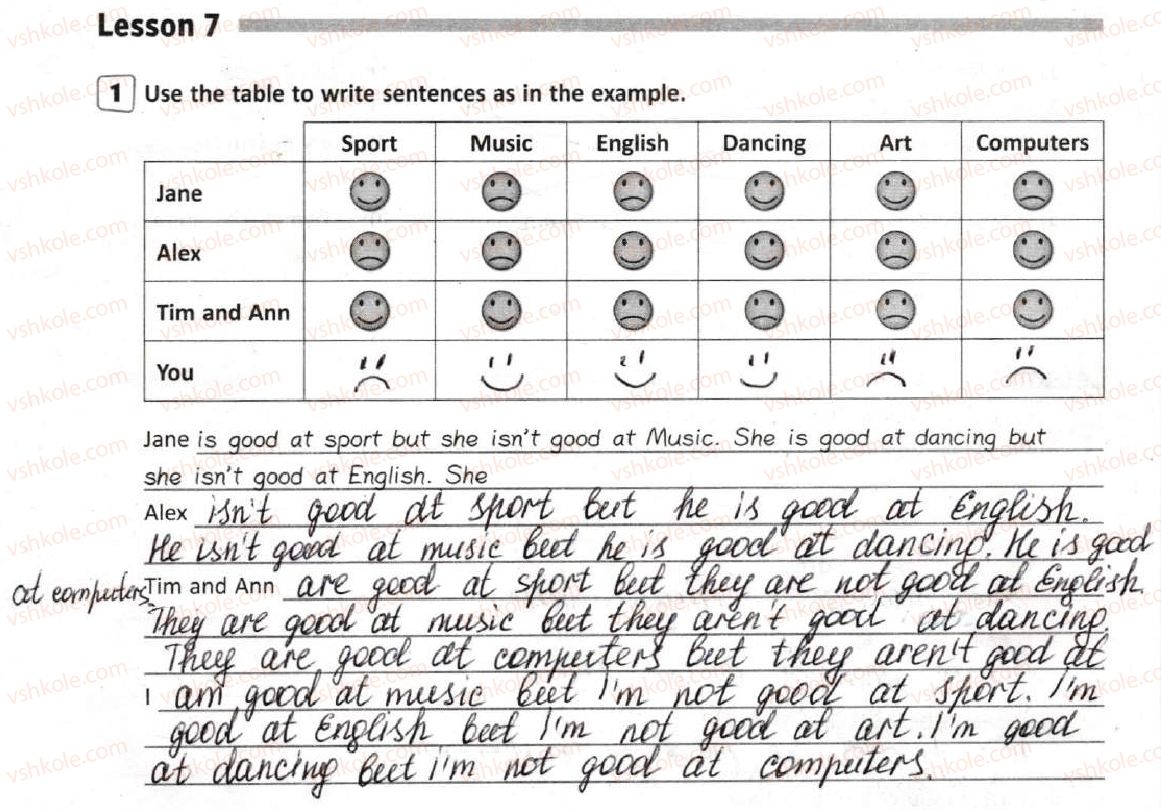 Lesson 7
1 Use the table to write sentences as in the example.
Sport Music English Dancing Art Computers
Jane
Alex
Tim and Ann
You
Jane is good at sport but she isn't good at Music. She is good at dancing but
she isn't good at English. She
Alex isn't good at sport but he is good at English.
He isn't good at music but he is good at dancing. He is good
at computers
Tim and Ann are good at sport but they are not good at English.
They are good at music but they aren't good at dancing.
They are good at computers but they aren't good at
I am good at music but I'm not good at sport. I'm
good at English but I'm not good at art. I'm good
at dancing but i'm not good at computers.
vshkole.com